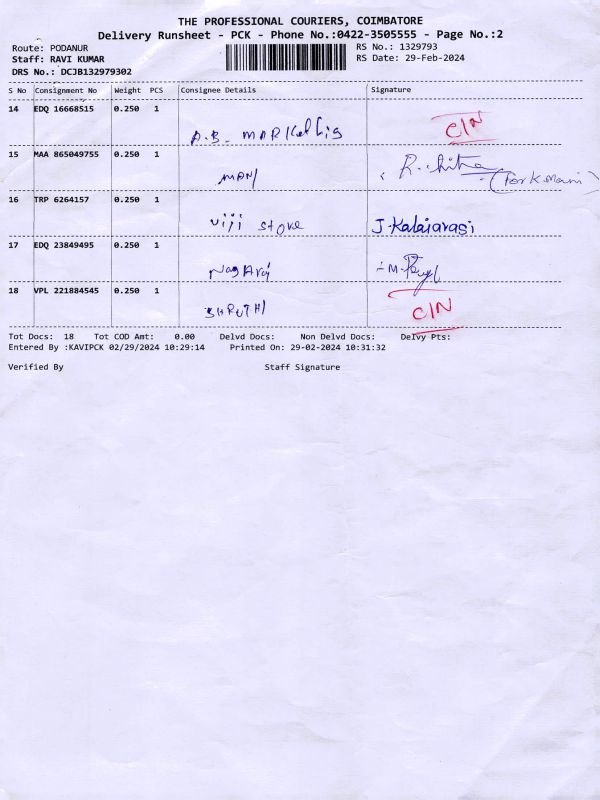 THE PROFESSIONAL COURIERS, COIMBATORE
Delivery Runsheet - PCK - Phone No.:0422-3505555 - Page No.:2
Route: PODANUR
RS No.: 1329793
Staff: RAVI KUMAR
RS Date: 29-Feb-2024
DRS No.: DCJB132979302
S No Consignment No Weight PCS Consignee Details Signature
14 EDQ 16668515 0.250 1
A.B. C/N
15 MAA 865049755 0.250 1
MANI (for K Mani)
16 TRP 6264157 0.250 1
viji store J.Kalaiarasi
17 EDQ 23849495 0.250 1
NagAraj
18 VPL 221884545 0.250 1
SHRUTHI C/N
Tot Docs: 18 Tot COD Amt: 0.00 Delvd Docs: Non Delvd Docs: Delvy Pts:
Entered By :KAVIPCK 02/29/2024 10:29:14 Printed On: 29-02-2024 10:31:32
Verified By Staff Signature